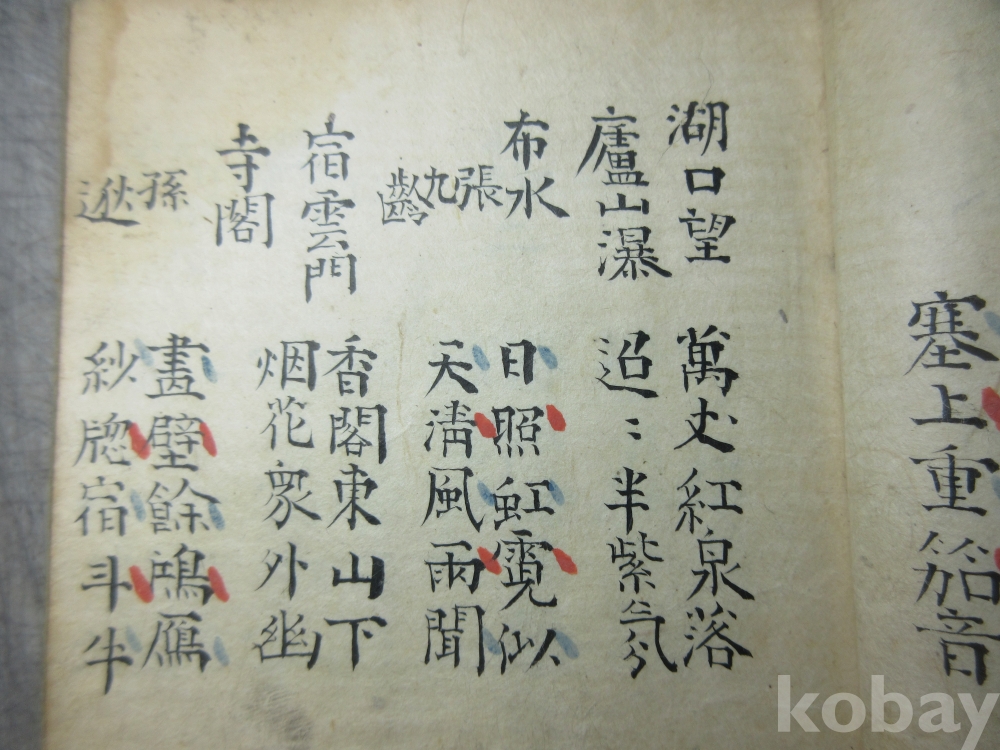 塞上重笳音
湖口望
廬山瀑
布水
張
九
齡
萬丈紅泉落
迢〻半紫氛
日照虹霓似
天清風雨聞
宿雲門
寺閣
孫
逖
香閣東山下
烟花衆外幽
畫壁餘鴻雁
紗牕宿斗牛
kobay